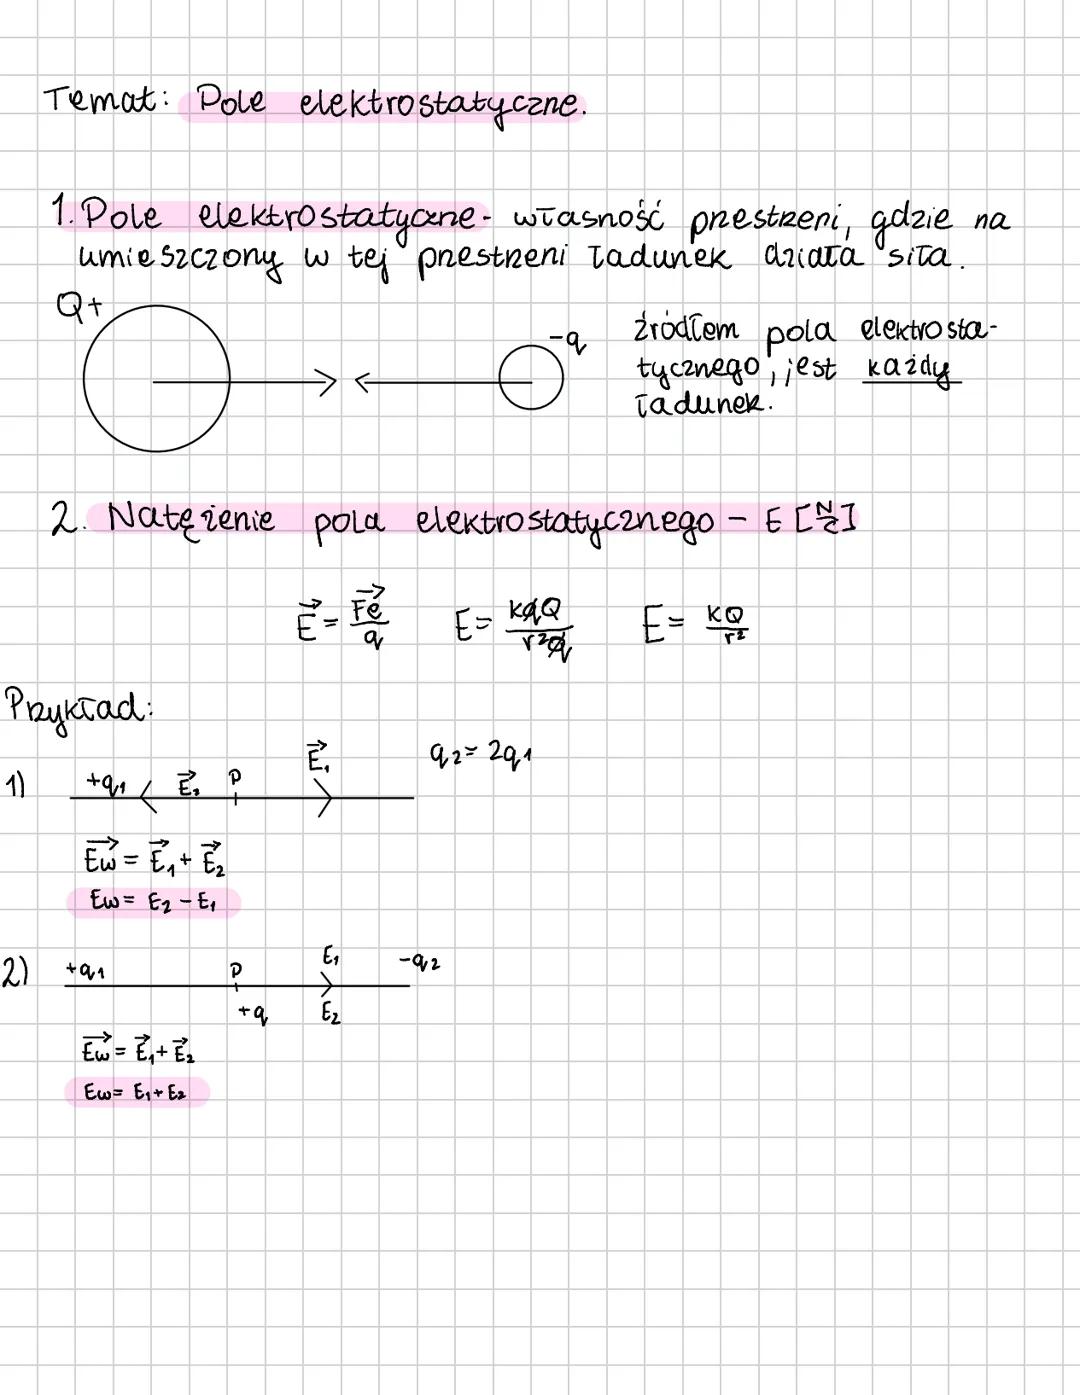 Temat: Pole elektrostatyczne.
1. Pole elektrostatyczne - własność przestrzeni, gdzie na
umieszczony w tej przestrzeni ładunek działa siła.
Q+
-q
źródłem pola elektrosta-
tycznego, jest każdy
ładunek.
2. Natężenie pola elektrostatycznego - E [N/C]
E⃗ = F⃗e/q E = kqQ/r²q E = kQ/r²
Przykład:
1) +q₁ E⃗₂ P E⃗₁ q₂ = 2q₁
E⃗w = E⃗₁ + E⃗₂
Ew = E₂ - E₁
2) +q₁ P E₁ -q₂
+q E₂
E⃗w = E⃗₁ + E⃗₂
Ew = E₁ + E₂